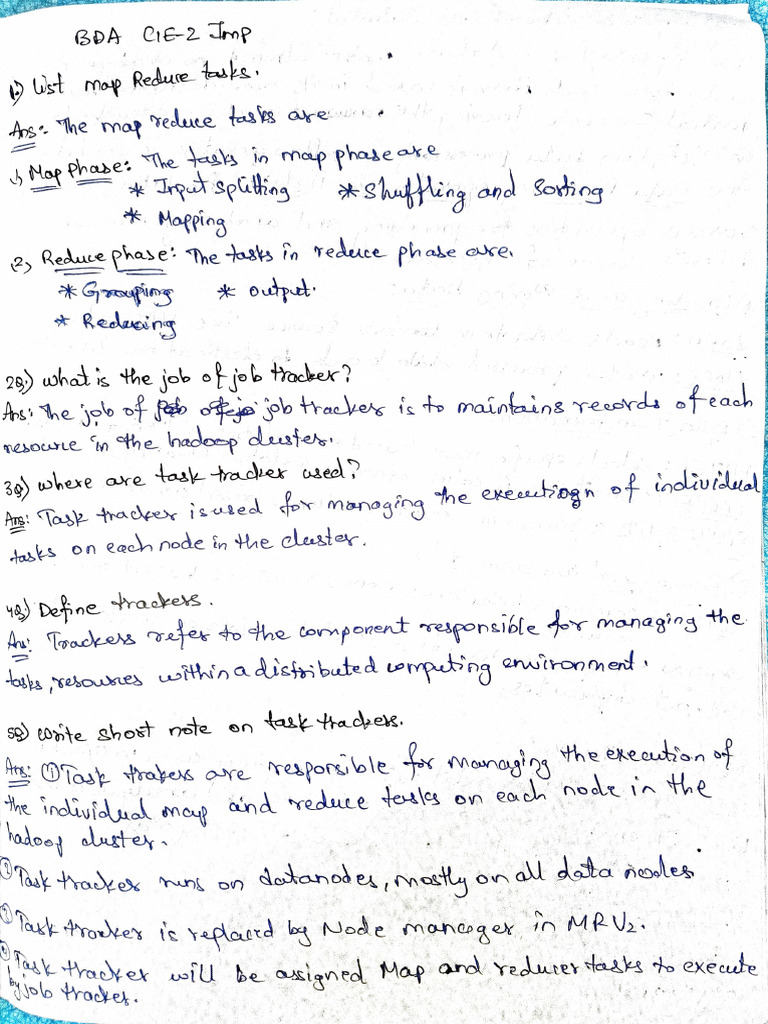 BDA CIE-2 Imp
1.) List map Reduce tasks.
Ans: The map reduce tasks are
1) Map Phase: The tasks in map phase are
* Input splitting * Shuffling and Sorting
* Mapping
2) Reduce phase: The tasks in reduce phase are.
* Grouping * output.
* Reducing
2Q.) what is the job of job tracker?
Ans: The job of job tracker is to maintains records of each
resource in the hadoop cluster.
3Q) where are task tracker used?
Ans: Task tracker is used for managing the execution of individual
tasks on each node in the cluster.
4Q) Define trackers.
Ans: Trackers refer to the component responsible for managing the
tasks, resources within a distributed computing environment.
5Q) write short note on task trackers.
Ans: ① Task trakers are responsible for managing the execution of
the individual map and reduce tasks on each node in the
hadoop cluster.
Task tracker runs on datanodes, mostly on all data nodes
Task tracker is replaced by Node manager in MRV2.
Task tracker will be assigned Map and reducer tasks to execute
by job tracker.